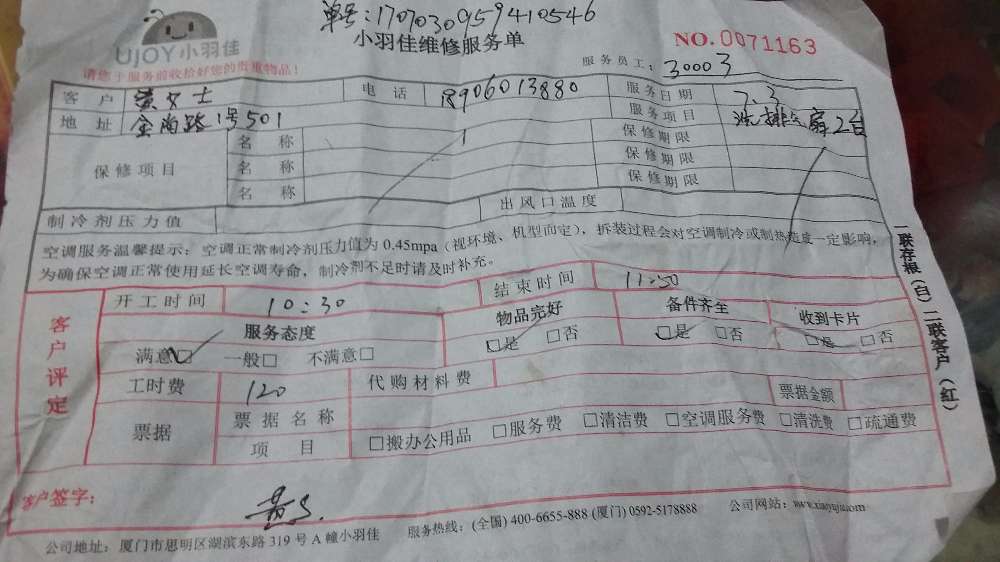 单号:1707030959410546
UJOY小羽佳
小羽佳维修服务单
NO.0071163
请您于服务前收拾好您的贵重物品!
服务员工: 30003
客户 黄女士 电话 18906013880 服务日期 7.3
地址 金尚路1号501 服务项目 洗排气扇2台
保修项目 名称 保修期限
名称 保修期限
名称 保修期限
制冷剂压力值 出风口温度
空调服务温馨提示:空调正常制冷剂压力值为0.45mpa(视环境、机型而定),拆装过程会对空调制冷或制热造成一定影响,
为确保空调正常使用延长空调寿命,制冷剂不足时请及时补充。
一联存根(白)二联客户(红)
客户评定
开工时间 10:30 结束时间 11:30
服务态度 物品完好 备件齐全 收到卡片
满意□ 一般□ 不满意□ □是 □否 □是 □否 □是 □否
工时费 120 代购材料费 票据金额
票据 票据名称
项目 □搬办公用品 □服务费 □清洁费 □空调服务费 □清洗费 □疏通费
客户签字:
公司地址:厦门市思明区湖滨东路319号A幢小羽佳 服务热线:(全国)400-6655-888(厦门)0592-5178888 公司网站:www.xiaoyujia.com